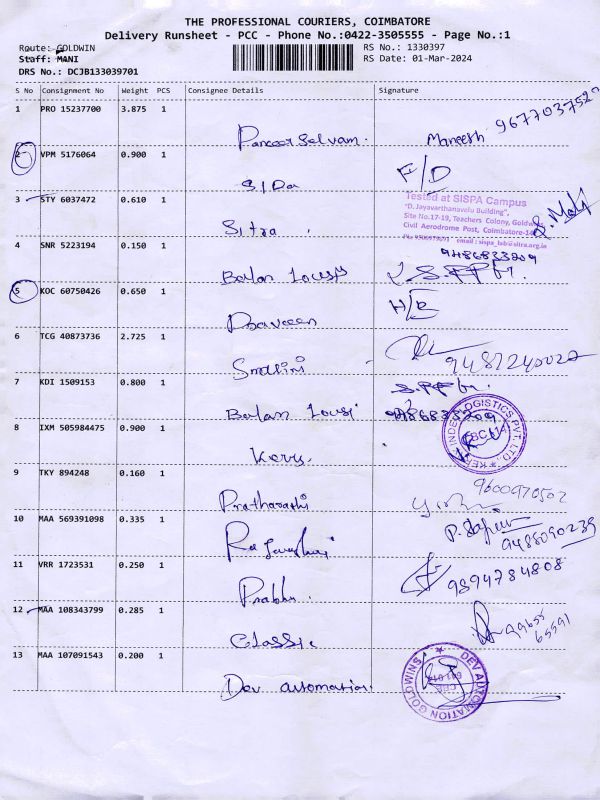 THE PROFESSIONAL COURIERS, COIMBATORE
Delivery Runsheet - PCC - Phone No.:0422-3505555 - Page No.:1
Route: GOLDWIN
RS No.: 1330397
Staff: MANI
RS Date: 01-Mar-2024
DRS No.: DCJB133039701
S No Consignment No Weight PCS Consignee Details Signature
1 PRO 15237700 3.875 1
Panneer Selvam. Maneesh
2 VPM 5176064 0.900 1
F/D
3 STY 6037472 0.610 1
Sitra.
Tested at SISPA Campus
"D.Jayavarthanavelu Building",
Site No.17-19, Teachers Colony, Goldwins
Civil Aerodrome Post, Coimbatore-14
4 SNR 5223194 0.150 1
9486833209
Balan
5 KOC 60750426 0.650 1
Praveen
6 TCG 40873736 2.725 1
Smalini
7 KDI 1509153 0.800 1
Balan
8 IXM 505984475 0.900 1
Kerry.
KERRY INDEV LOGISTICS PVT. LTD.
9 TKY 894248 0.160 1
9600970502
10 MAA 569391098 0.335 1
9488090239
11 VRR 1723531 0.250 1
Prabhu. 9894784808
12 MAA 108343799 0.285 1
Classic
99655
65591
13 MAA 107091543 0.200 1
Dev. automation.
DEV AUTOMATION GOLDWINS